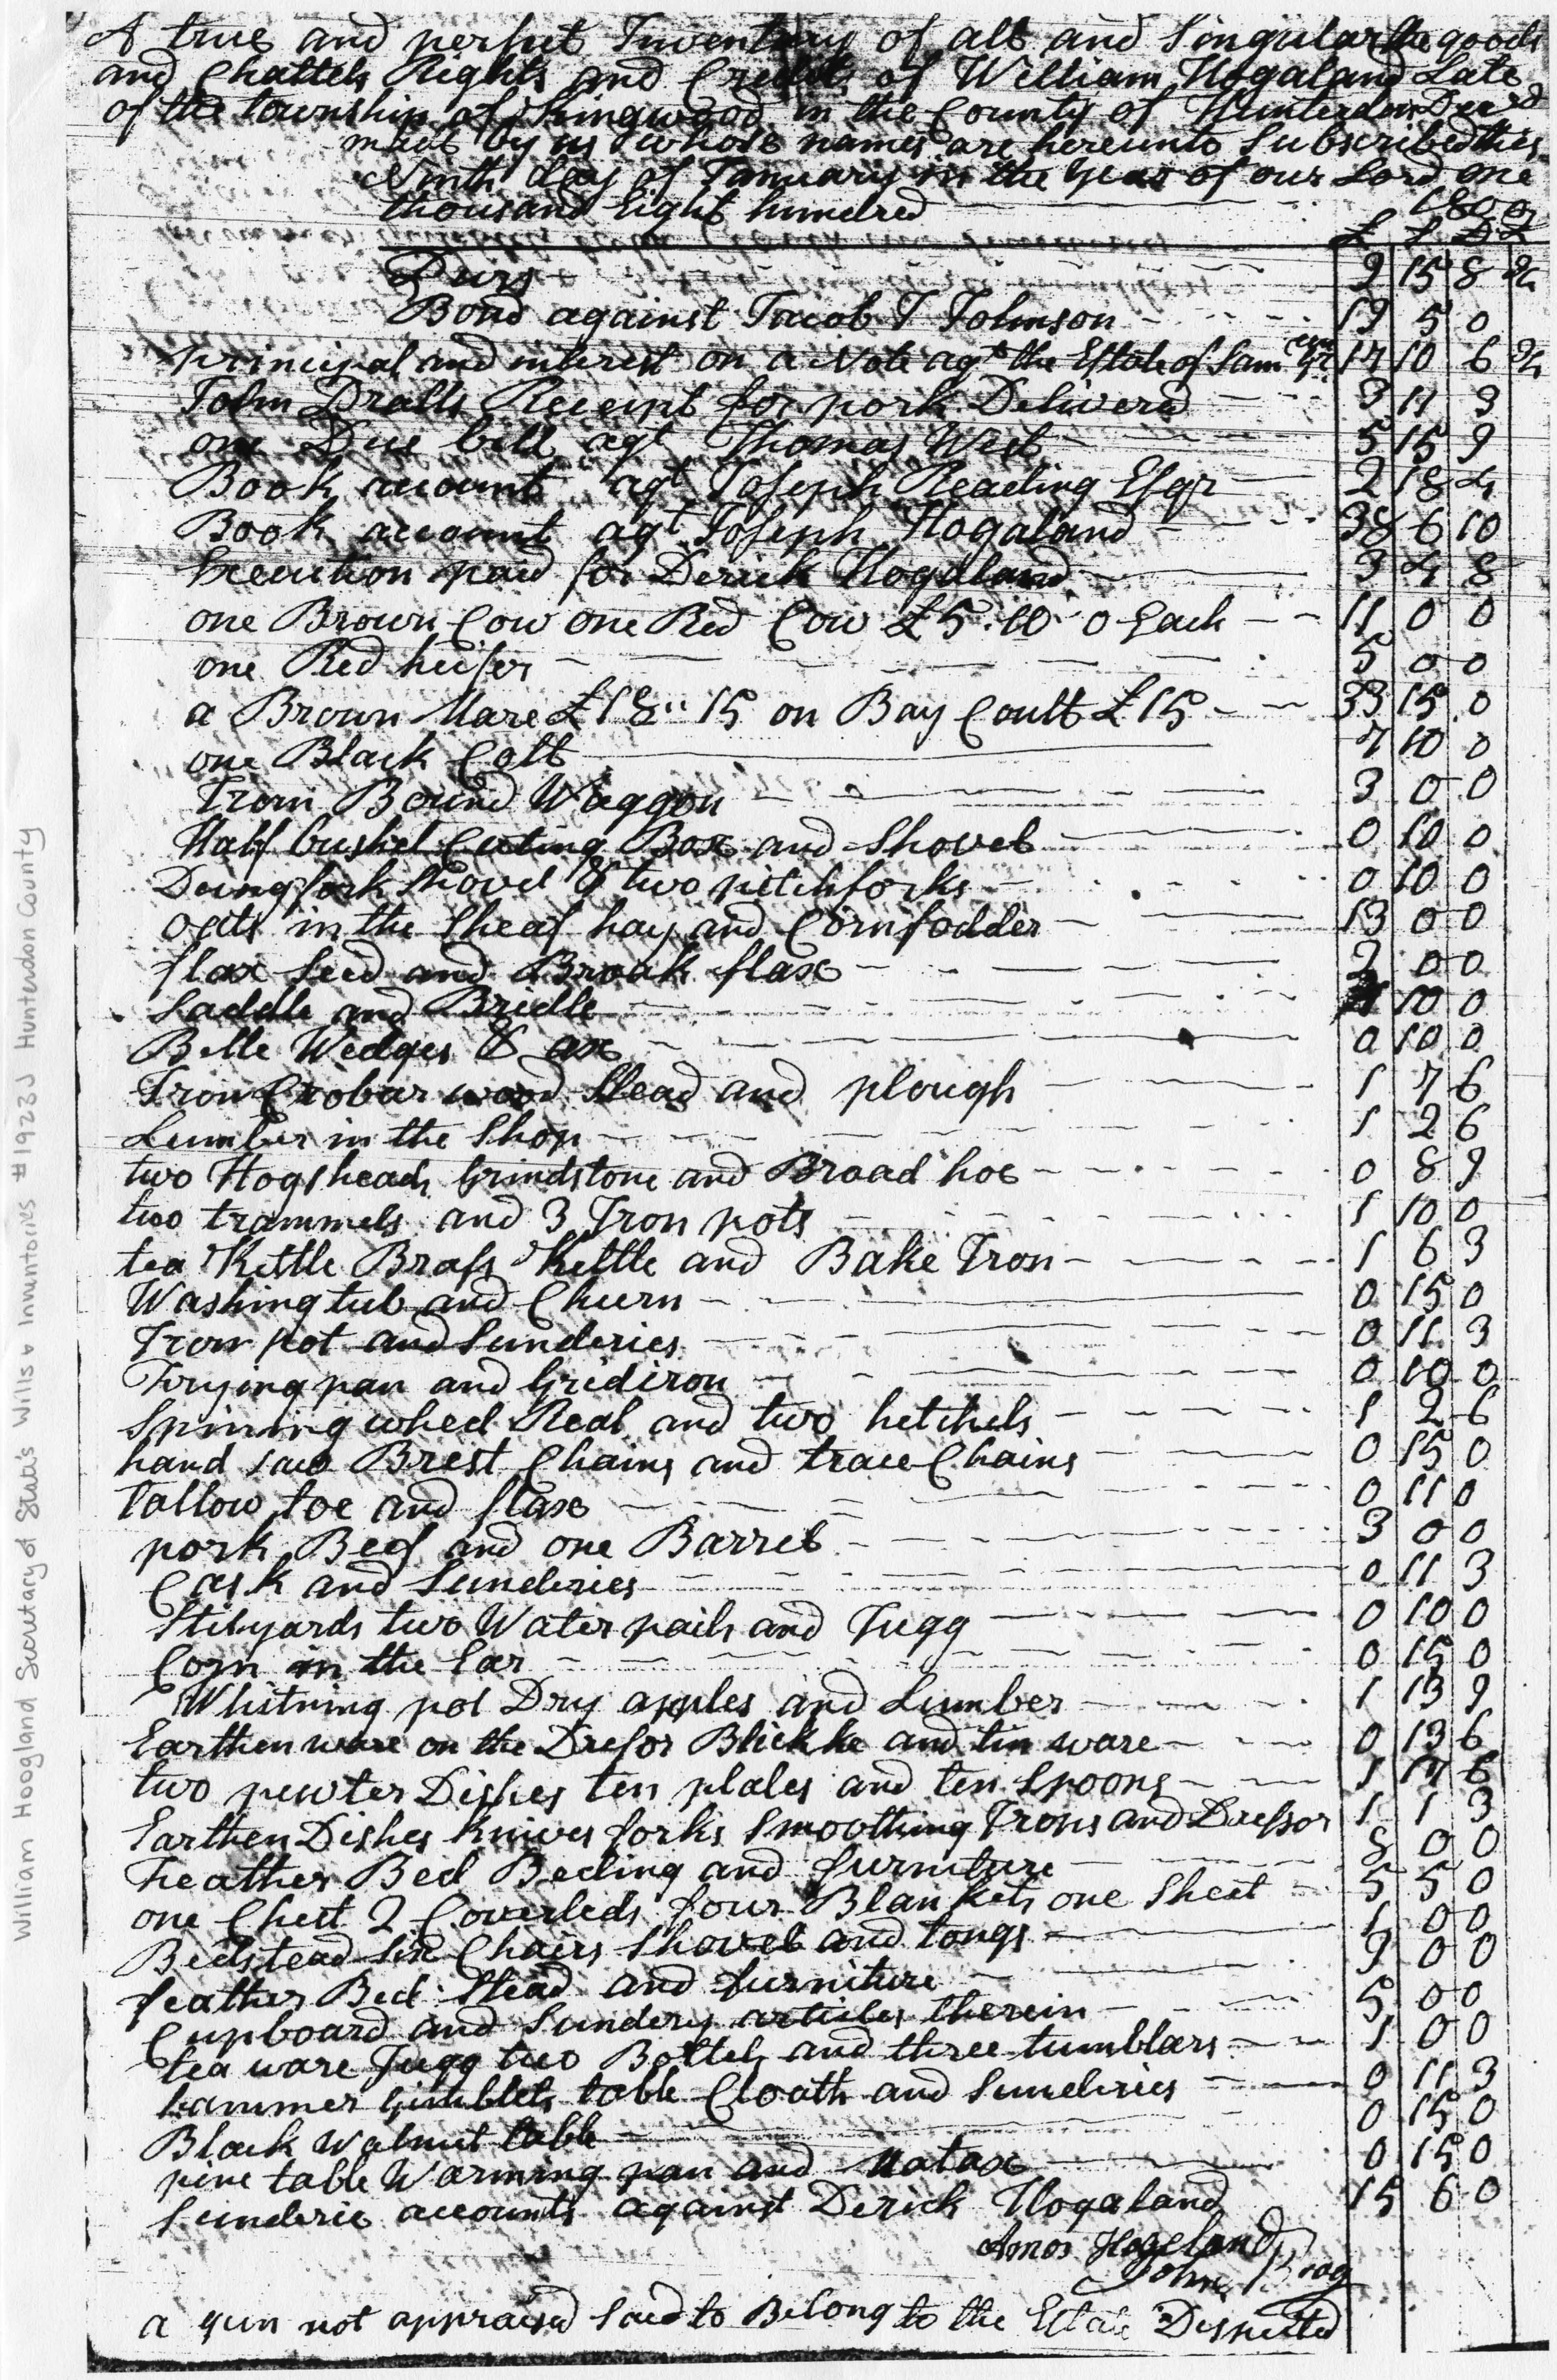 A true and perfect Inventory of all and Singular the goods
and Chattels Rights and Credits of William Hogaland Late
of the township of Kingwood in the County of Hunterdon Decd
made by us whose names are hereunto Subscribed this
Ninth day of January in the year of our Lord one
thousand Eight hundred
£ S D
Purs 2 15 8
Bond against Jacob T Johnson 19 5 0
principal and interest on a Note agt the Estate of Sam 17 10 6
John Dralls Receipt for pork Deliverd 3 11 3
one Due bill agt Thomas West 5 15 9
Book account agt Joseph Reading Esqr 2 18 4
Book account agt Joseph Hogaland 38 6 10
Execution paid for Derick Hogaland 3 4 8
one Brown Cow one Red Cow £5.10.0 Each 11 0 0
one Red heifer 5 0 0
a Brown Mare £18"15 on Bay Coult £15 33 15 0
one Black Colt 7 10 0
Iron Bound Waggon 3 0 0
Half bushel Cuting Box and Shovel 0 10 0
Dungfork Shovel & two pitchforks 0 10 0
oats in the Sheaf hay and Cornfodder 13 0 0
flax Seed and Broak flax 2 0 0
Saddle and Bridle 10 0
Bettle Wedges & ax 0 10 0
Iron Crobar wood Slead and plough 1 7 6
Lumber in the Shop 1 2 6
two Hogsheads Grindstone and Broad hoe 0 8 9
two trammels and 3 Iron pots 1 10 0
tea Kettle Brass Kettle and Bake Iron 1 6 3
Washing tub and Churn 0 15 0
Iron pot and Sunderies 0 11 3
Frying pan and Gridiron 0 10 0
Spinning wheel Real and two hetchels 1 2 6
hand saw Brest Chains and trace Chains 0 15 0
tallow toe and flax 0 11 0
pork Beef and one Barrel 3 0 0
Cask and Sunderies 0 11 3
Stilyards two Water pails and Jugg 0 10 0
Corn in the Ear 0 15 0
Whitning pot Dry apples and Lumber 1 13 9
Earthen ware on the Dresor Blickke and tin ware 0 13 6
two pewter Dishes ten plates and ten Spoons 1 17 6
Earthen Dishes Knives forks Smoothing Irons and Dressor 1 1 3
Feather Bed Beding and furniture 8 0 0
one Chest 2 Coverleds four Blankets one Sheet 5 5 0
Bedstead Six Chairs Shovel and tongs 1 0 0
feather Bed Stead and furniture 9 0 0
Cupboard and Sundery articles therein 5 0 0
tea ware Jugg two Bottels and three tumblars 1 0 0
hammer gimblets table Cloath and Sunderies 0 11 3
Black Walnut table 0 15 0
pine table Warming pan and Matax 0 15 0
Sunderie accounts against Derick Hogaland 15 6 0
Amos Hogeland
John
a gun not appraised Said to Belong to the Estate Desputed
William Hoogland Secretary of State's Wills & Inventories #1923J Hunterdon County